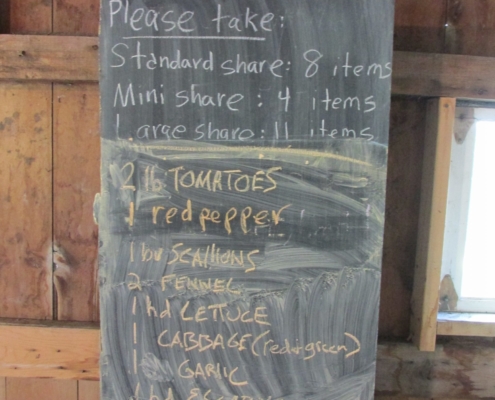 Please take:
Standard share: 8 items
Mini share: 4 items
Large share: 11 items
2 lb TOMATOES
1 red pepper
1 bu SCALLIONS
2 FENNEL
1 hd LETTUCE
1 CABBAGE (red or green)
1 GARLIC
1 hd